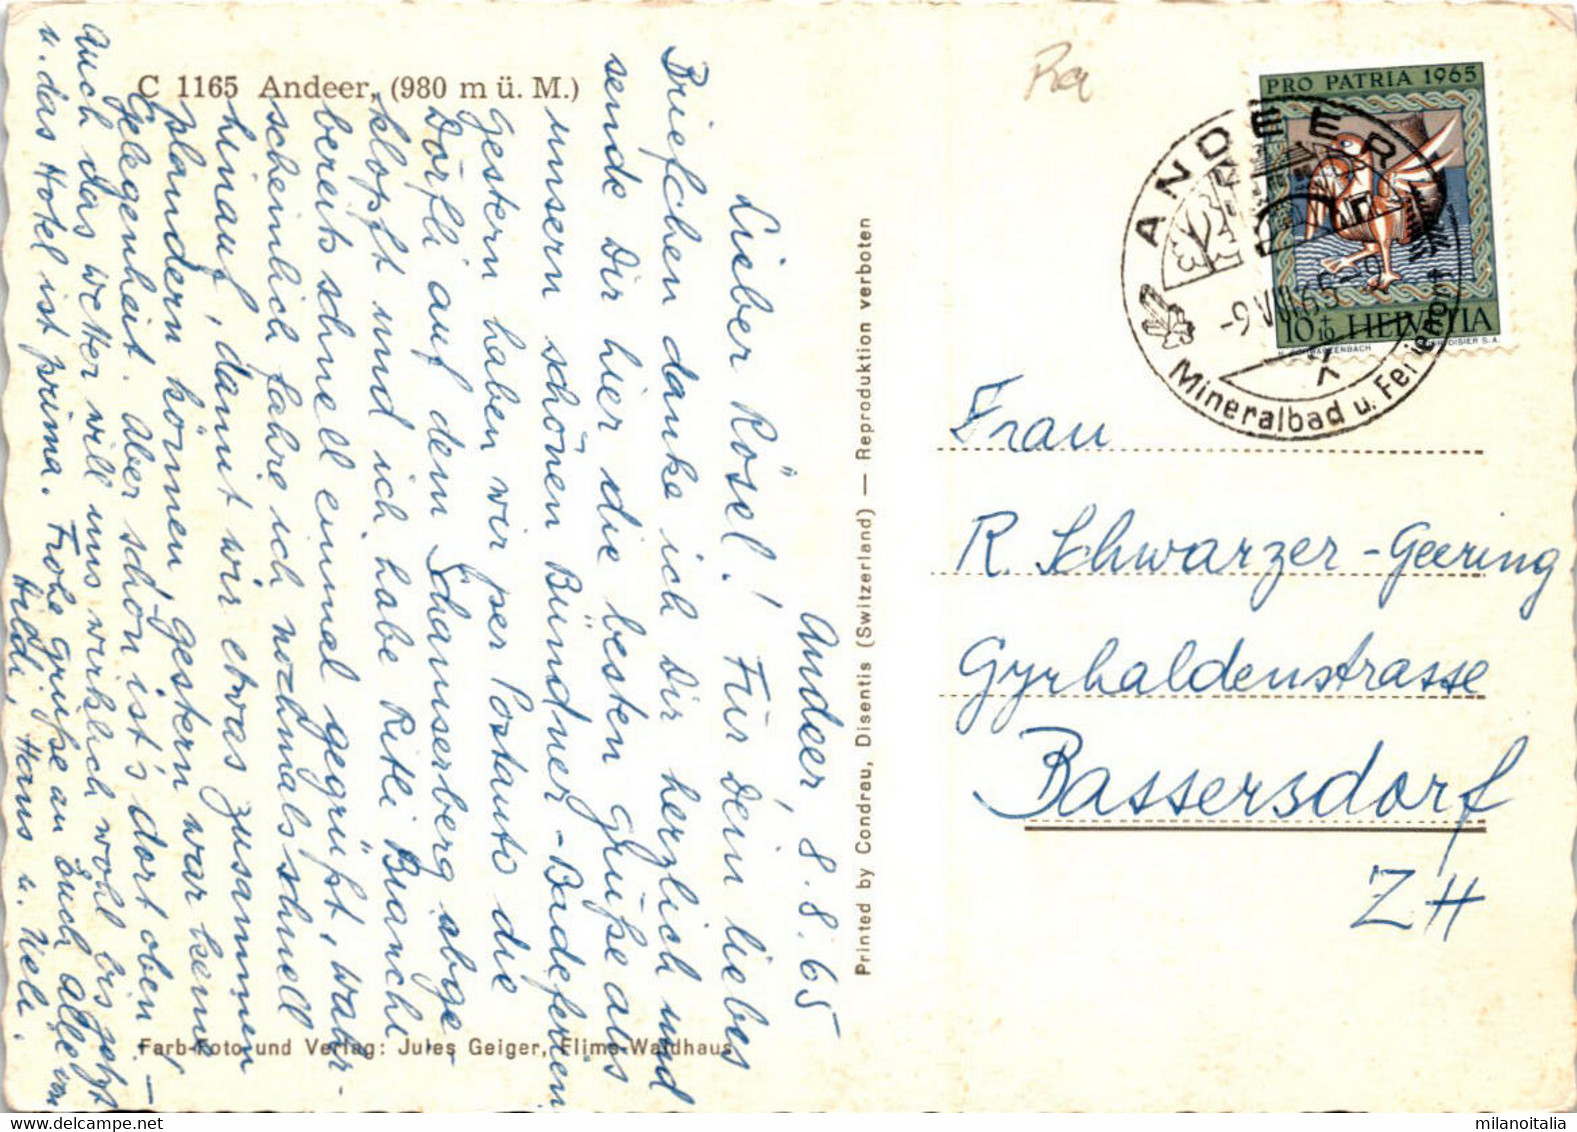 C 1165 Andeer, (980 m ü. M.)
Andeer, 8.8.65
Lieber Rösel! Für Dein liebes
Briefchen danke ich Dir herzlich und
sende Dir hier die besten Grüße aus
unsern schönen Bündner-Badeferien
Gestern haben wir per Postauto die
Dörfli auf dem Schamserberg abge
klopft und ich habe Ritli Bianchi
bereits schnell einmal gegrüßt, wahr-
scheinlich fahre ich nochmals schnell
hinauf, damit wir etwas zusammen
plaudern können, gestern war keine
Gelegenheit. Aber schön ist's dort oben –
Auch das Wetter will uns wirklich wohl bis jetzt
u. das Hotel ist prima. Frohe Grüße an Euch alle von
Hildi, Hans u. Ueli.
Farb-Foto und Verlag: Jules Geiger, Flims-Waldhaus
Printed by Condrau, Disentis (Switzerland) — Reproduktion verboten
PRO PATRIA 1965
10+ HELVETIA
ANDEER
-9.VIII.65
Mineralbad u. Ferienort
Frau
R. Schwarzer-Geering
Gyrhaldenstrasse
Bassersdorf
ZH
milanoitalia